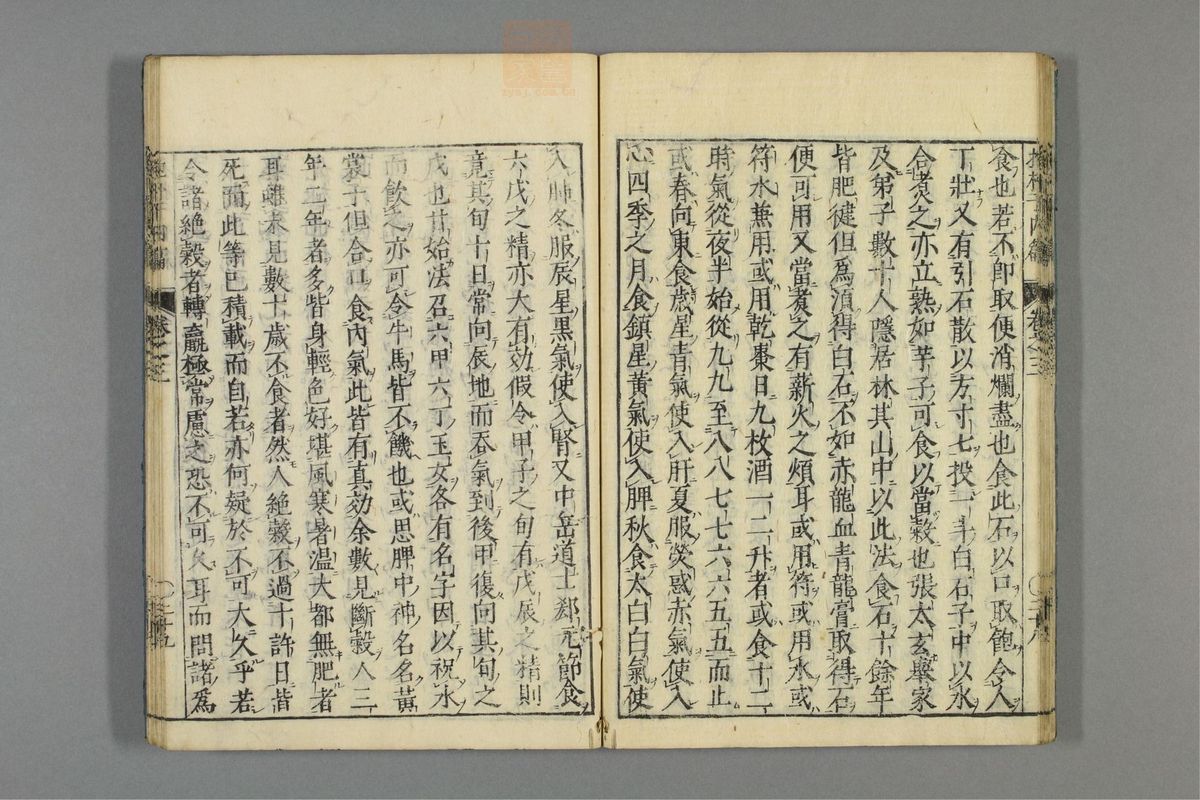 食也若不即取便消爛盡也食此石以口取飽令人
丁壯又有引石散以方寸七投一斗白石子中以水
合煮之亦立熟如芋子可食以當穀也張太玄舉家
及弟子數十人隱居林其山中以此法食石十餘年
皆肥健但爲湏得白石不如赤龍血青龍膏取得石
便可用又當煮之有薪火之煩耳或用符或用水或
符水兼用或用乾棗日九枚酒一二升者或食十二
時氣從夜半始從九九至八八七七六六五五而止
或春向東食歲星青氣使入肝夏服熒惑赤氣使入
心四季之月食鎮星黃氣使入脾秋食太白白氣使
入肺冬服辰星黑氣使入腎又中岳道士郄元節食
六戊之精亦大有効假令甲子之旬有戊辰之精則
竟其旬十日常向辰地而吞氣到後甲復向其旬之
戊也甘始法召六甲六丁玉女各有名字因以祝水
而飲之亦可令牛馬皆不饑也或思脾中神名名黃
裳子但合口食內氣此皆有真効余數見斷穀人三
年二年者多皆身輕色好堪風寒暑濕大都無肥者
耳雖未見數十歲不食者然人絶穀不過十許日皆
死而此等已積載而自若亦何疑於不可大久乎若
令諸絶穀者轉羸極常慮之恐不可久耳而問諸爲
卷之三
二十九
抱朴子內篇
卷之三
二十八
zysj.com.cn